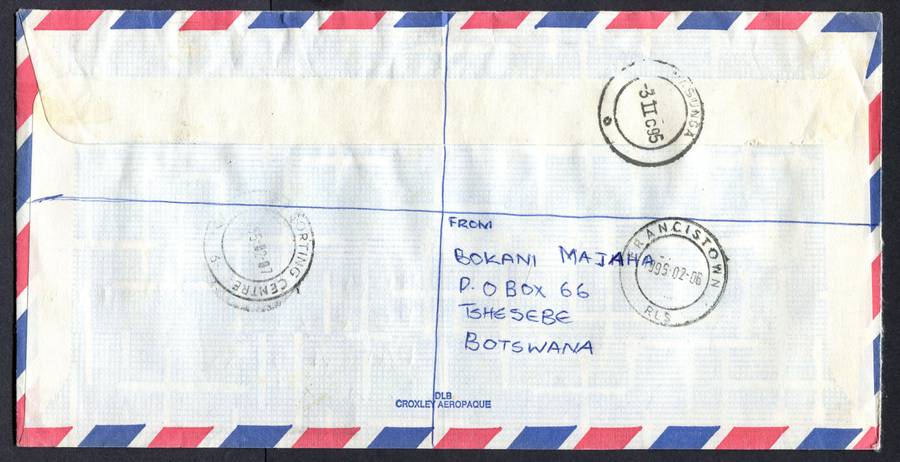 -3 II 95
FROM
BOKANI MAJAHA
P.O BOX 66
TSHESEBE
BOTSWANA
FRANCISTOWN
1995-02-06
RLS
SORTING CENTRE
95-02-07
DLB
CROXLEY AEROPAQUE